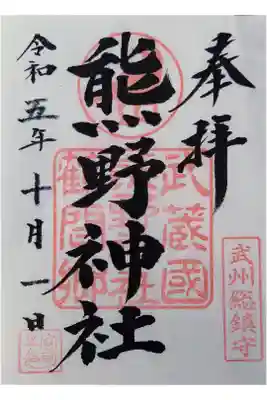 奉拝
武州総鎮守
武蔵國
熊野神社
令和五年十月一日